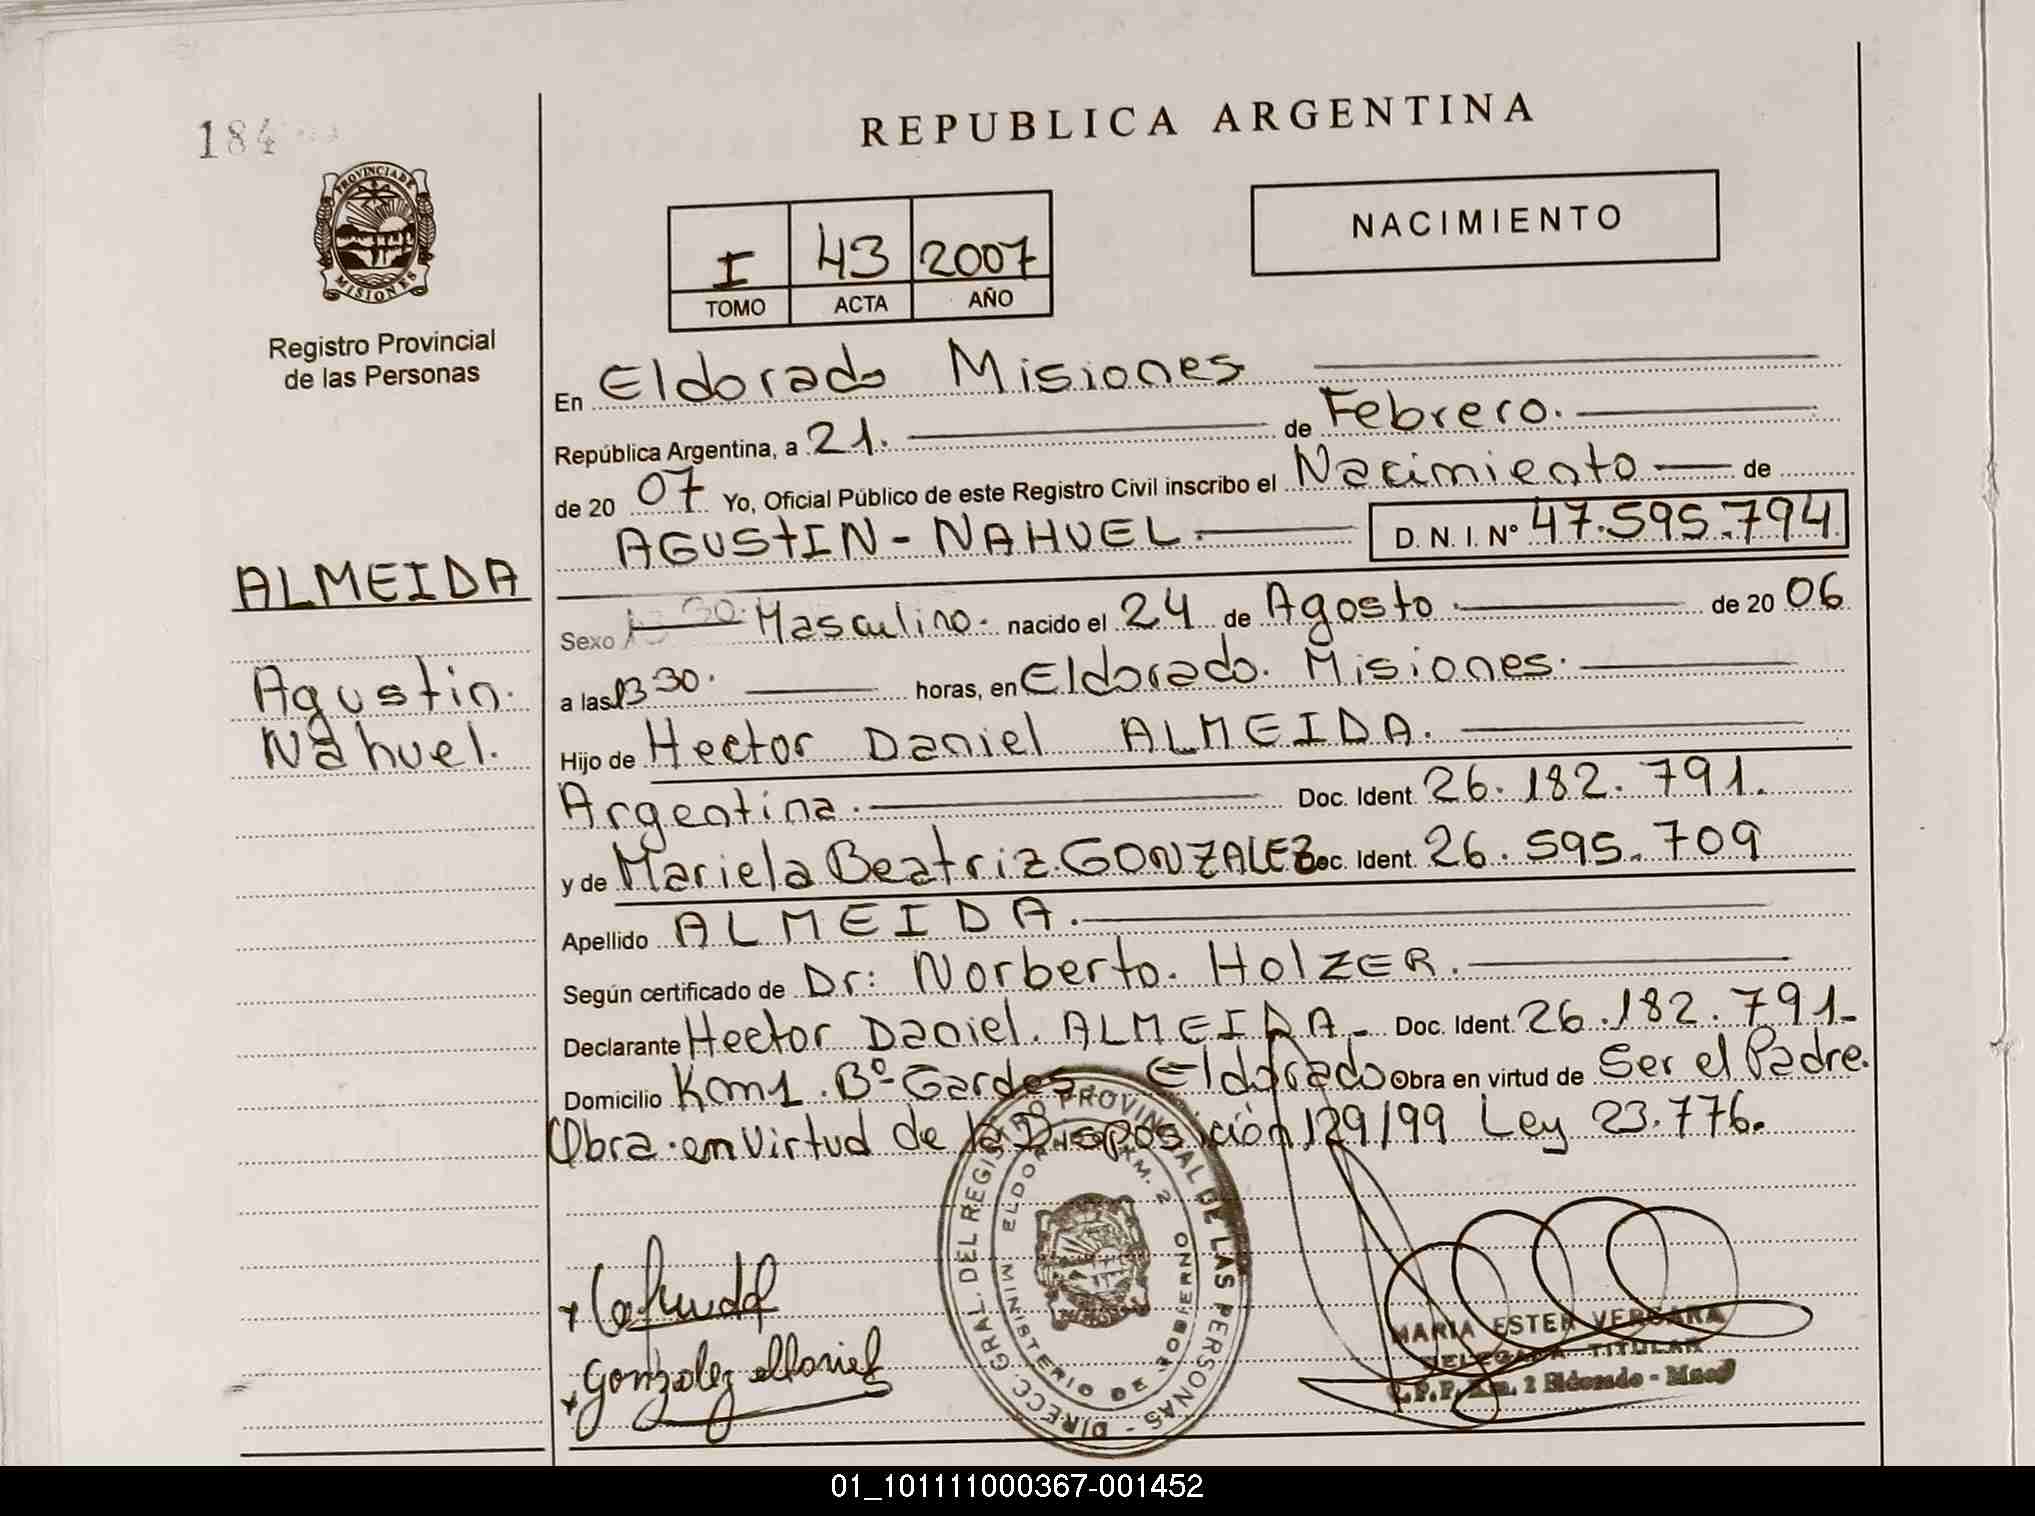 184
PROVINCIA DE
MISIONES
Registro Provincial
de las Personas
ALMEIDA
Agustin.
Nahuel.
REPUBLICA ARGENTINA
NACIMIENTO
I 43 2007
TOMO ACTA AÑO
En Eldorado Misiones
República Argentina, a 21. de Febrero.
de 20 07 Yo, Oficial Público de este Registro Civil inscribo el Nacimiento de
AGUSTIN-NAHUEL. D. N. I. Nº 47.595.794
Sexo Masculino. nacido el 24 de Agosto de 20 06
a las 13 30. horas, en Eldorado. Misiones.
Hijo de Hector Daniel ALMEIDA.
Argentina. Doc. Ident. 26.182.791.
y de Mariela Beatriz GONZALEZ Doc. Ident. 26.595.709
Apellido ALMEIDA.
Según certificado de Dr: Norberto. HOlZER.
Declarante Hector Daniel. ALMEIDA- Doc. Ident. 26.182.791-
Domicilio Km1. Bº- Eldorado Obra en virtud de Ser el Padre.
Obra en virtud de la Disposición 129/99 Ley 23.776.
DIRECC. GRAL. DEL REGISTRO PROVINCIAL DE LAS PERSONAS -
MINISTERIO DE GOBIERNO
ELDORADO KM. 2
Gonzalez Mariel
MARIA ESTER VERGARA
DELEGADA TITULAR
R.P.P. Km. 2 Eldorado - Mnes
01_101111000367-001452